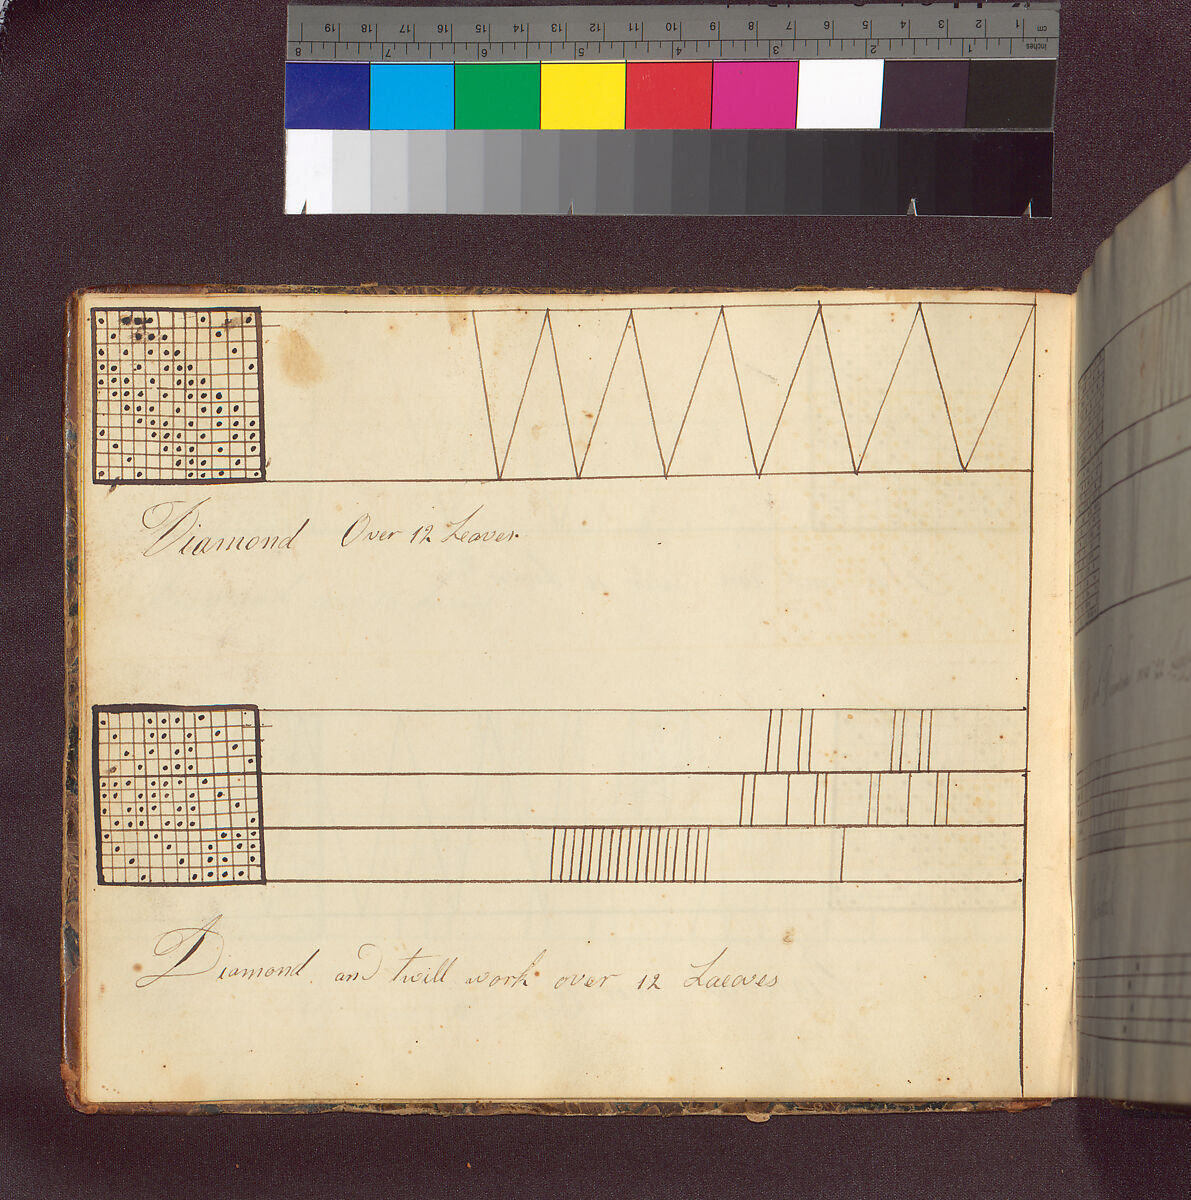 cm 1 2 3 4 5 6 7 8 9 10 11 12 13 14 15 16 17 18 19
inches 1 2 3 4 5 6 7 8
Diamond Over 12 Leaves
Diamond and twill work over 12 Laeaves